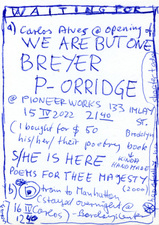 WAITING FOR
a) Carlos Alves @ opening of
WE ARE BUT ONE
BREYER
P-ORRIDGE
@ PIONEER WORKS 133 IMLAY
15 IV 2022 2140 ST.
(I bought for $ 50 Brooklyn
his/her/their poetry book
S/HE IS HERE
HANDMADE
POEMS FOR THEE MAJESTY
b) D train to Manhattan (2000)
(stayed overnight @
16 IV Carlos) -
1240